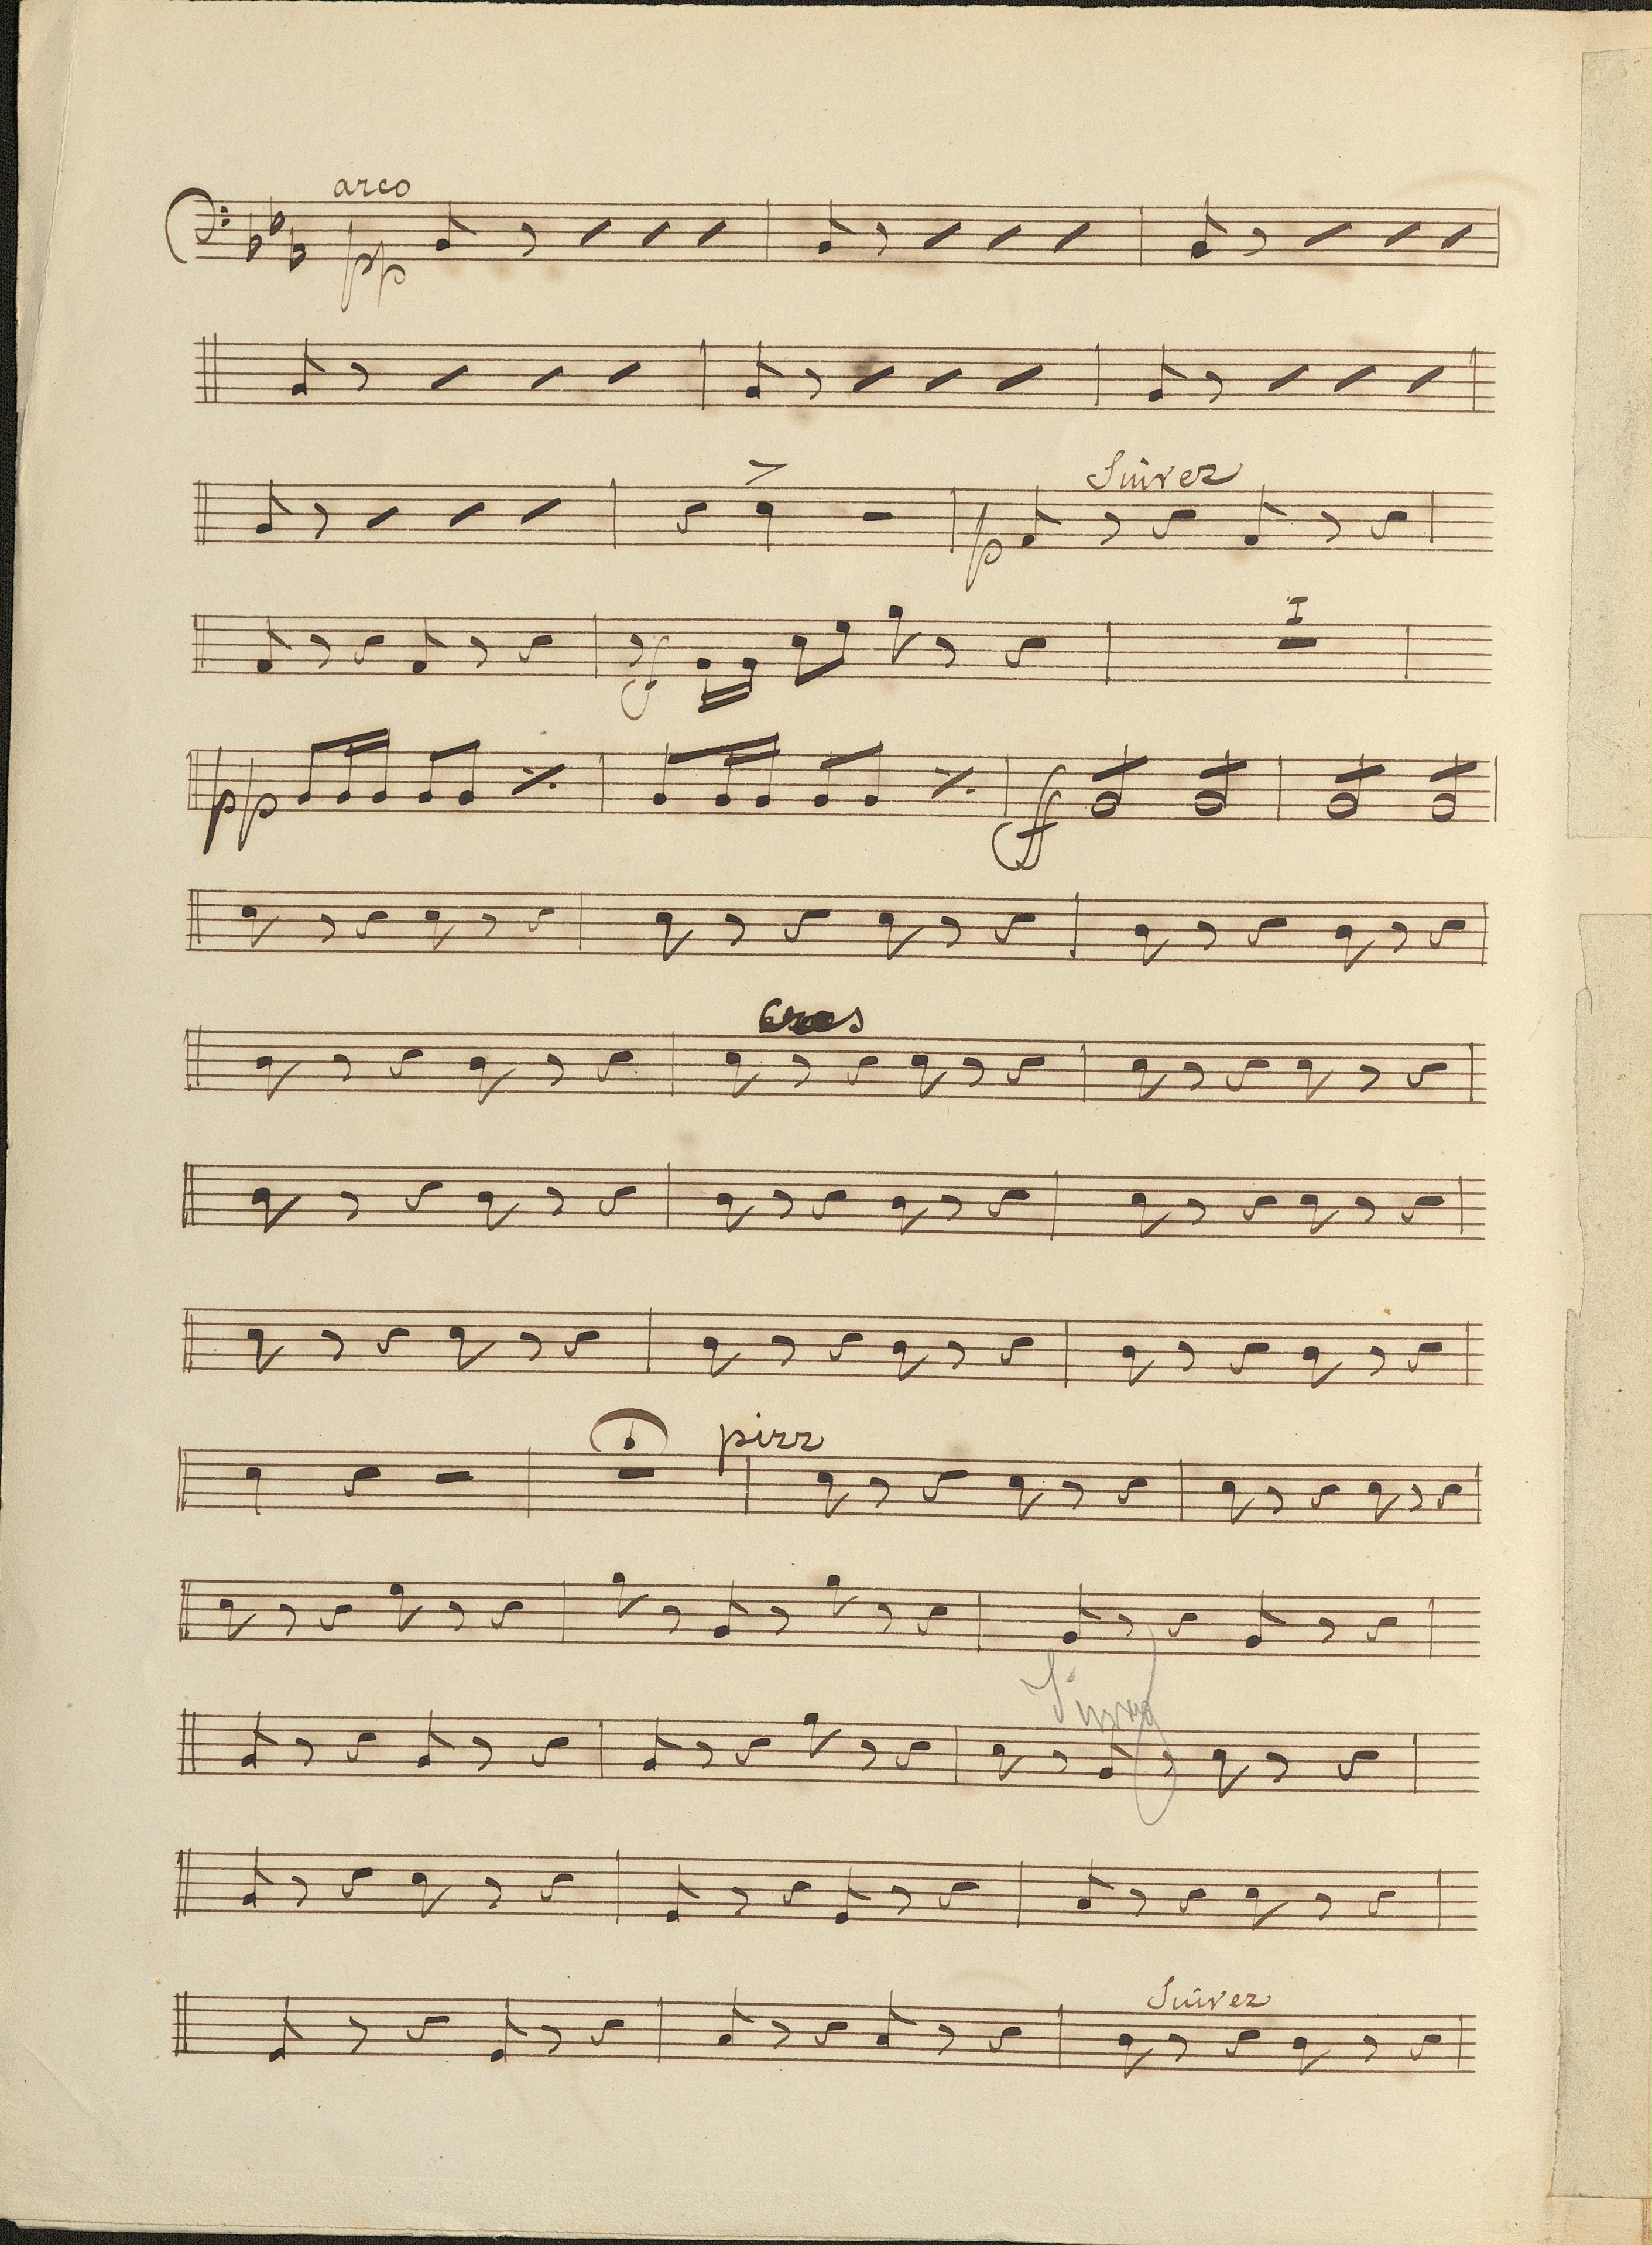 arco
pp
Suivez
p
f
I
pp
ff
Cres
pizz
Suivez
Suivez